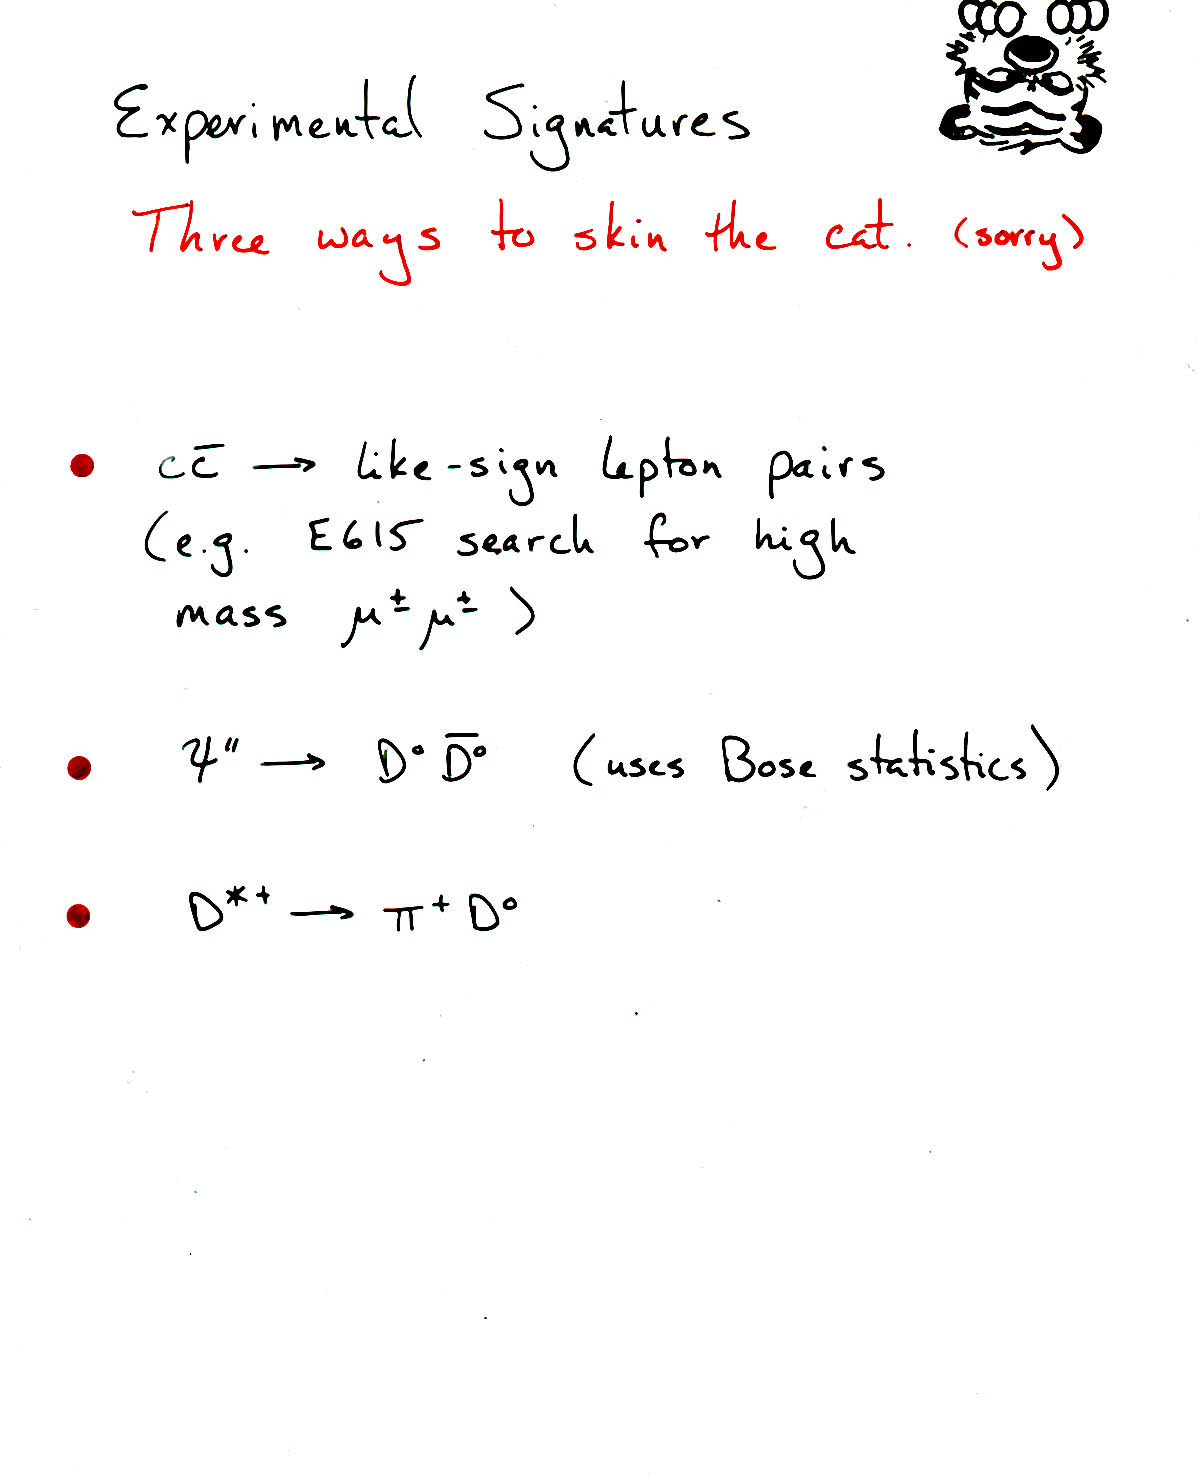 Experimental Signatures
Three ways to skin the cat. (sorry)
• cc̄ → like-sign lepton pairs
(e.g. E615 search for high
mass μ± μ±)
• ψ" → D° D̄° (uses Bose statistics)
• D*+ → π+ D°